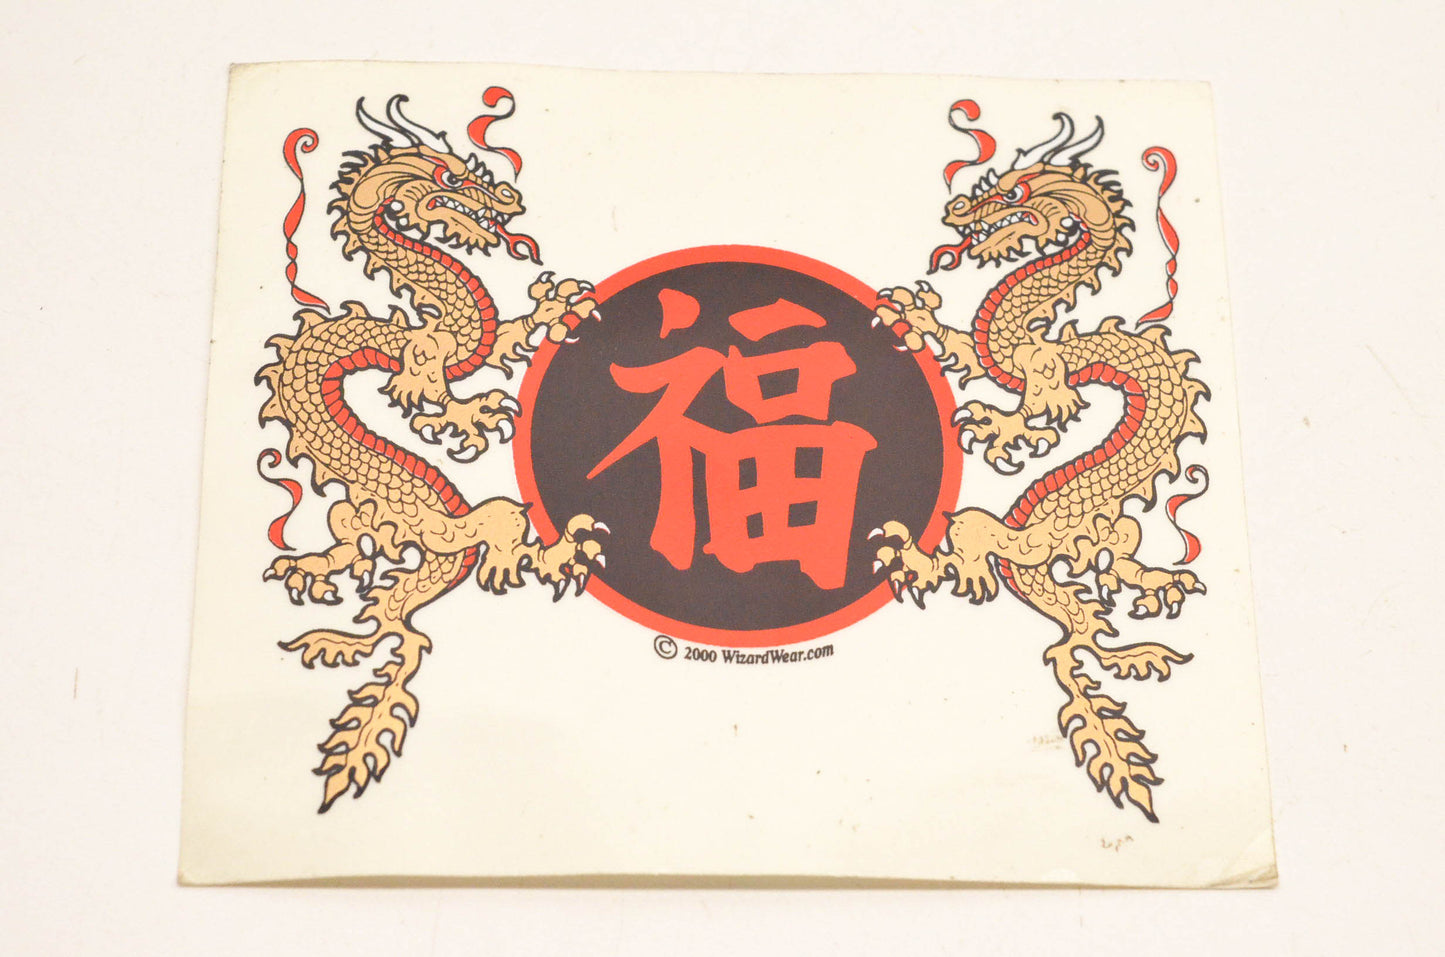 福
© 2000 WizardWear.com